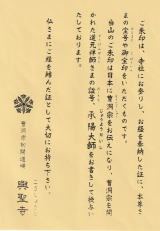 ご朱印は、寺院にお参りし、お経を奉納した証に、本尊さ
まの宝号や御宝印をいただくものです。
当山のご朱印は日本に曹洞宗をお伝えになり、曹洞宗を開
かれた道元禅師さまの諡号、承陽大師をお書きして授与い
たしております。
仏さまにご縁を結んだ証として大切にお持ち下さい。
曹洞宗初開道場
興聖寺